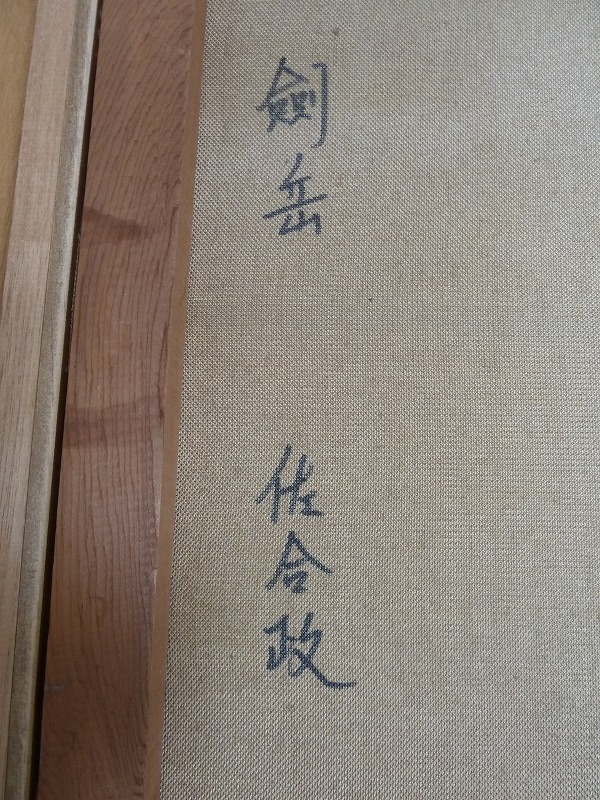 劍岳
佐合政